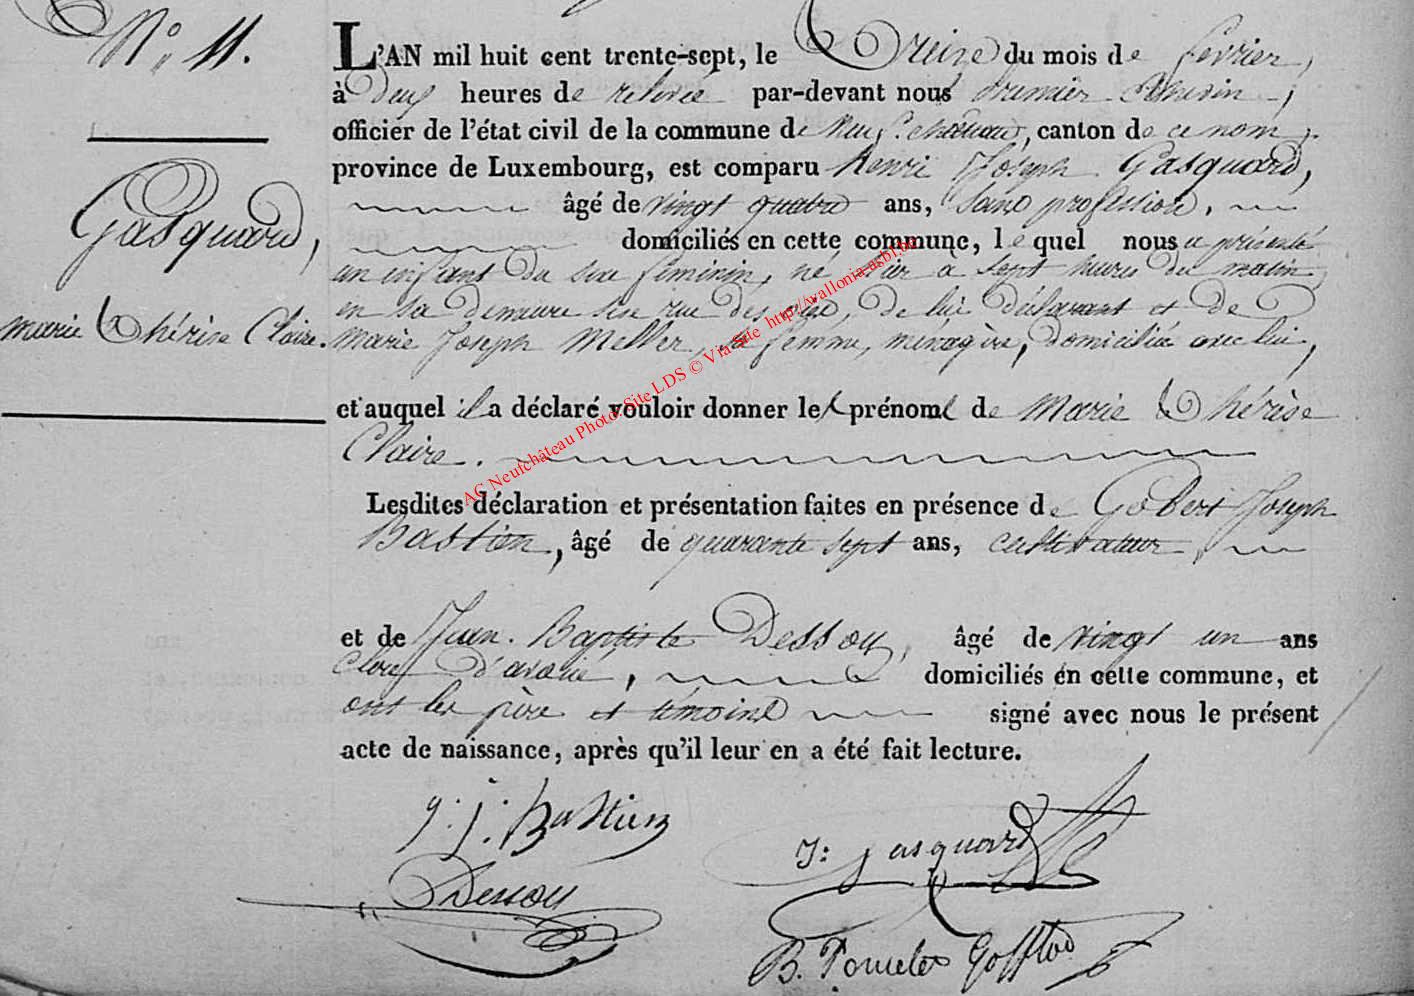 N° 11.
L'AN mil huit cent trente-sept, le Treize du mois de février,
à Deux heures de relevée par-devant nous premier Echevin,
officier de l'état civil de la commune de Neufchâteau, canton de ce nom,
province de Luxembourg, est comparu Henri Joseph Gasquard,
âgé de vingt quatre ans, sans profession,
Gasquard,
domiciliés en cette commune, le quel nous a présenté
un enfant du sexe féminin, né hier à sept heures du matin,
en sa demeure sise rue des, de lui déclarant et de
Marie Thérèse Claire.
Marie Joseph Meller, sa femme, ménagère, domiciliée avec lui,
et auquel il a déclaré vouloir donner les prénoms de Marie Thérèse
Claire.
Lesdites déclaration et présentation faites en présence de Gobert Joseph
Bastien, âgé de quarante sept ans, cultivateur,
et de Jean Baptiste Dessoy, âgé de vingt un ans
Clerc d'avoué, domiciliés en cette commune, et
ont les père et témoins signé avec nous le présent
acte de naissance, après qu'il leur en a été fait lecture.
g. j. Bastien
J: gasquard
Dessoy
B. Poncelet
AC Neufchâteau Photo. Site LDS © Via Site http://wallonia-asbl.be